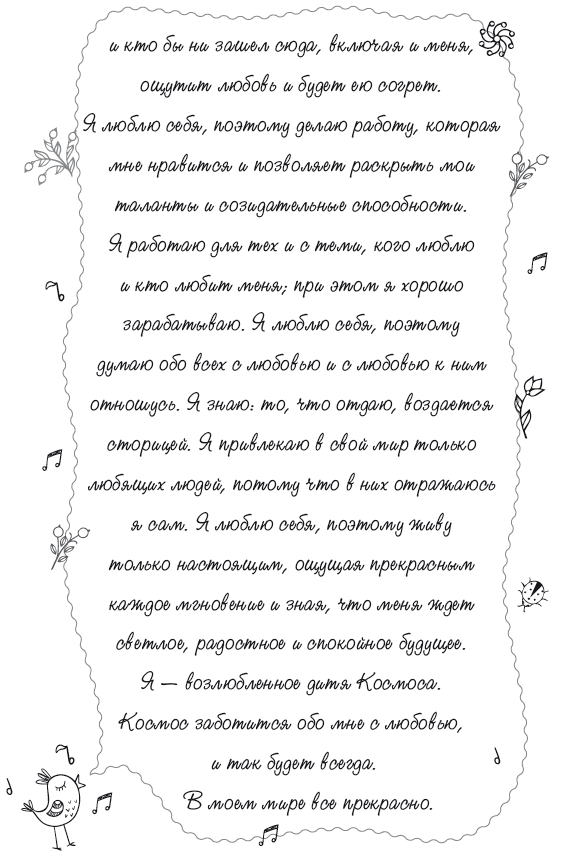 и кто бы ни зашел сюда, включая и меня,
ощутит любовь и будет ею согрет.
Я люблю себя, поэтому делаю работу, которая
мне нравится и позволяет раскрыть мои
таланты и созидательные способности.
Я работаю для тех и с теми, кого люблю
и кто любит меня; при этом я хорошо
зарабатываю. Я люблю себя, поэтому
думаю обо всех с любовью и с любовью к ним
отношусь. Я знаю: то, что отдаю, воздается
сторицей. Я привлекаю в свой мир только
любящих людей, потому что в них отражаюсь
я сам. Я люблю себя, поэтому живу
только настоящим, ощущая прекрасным
каждое мгновение и зная, что меня ждет
светлое, радостное и спокойное будущее.
Я — возлюбленное дитя Космоса.
Космос заботится обо мне с любовью,
и так будет всегда.
В моем мире все прекрасно.